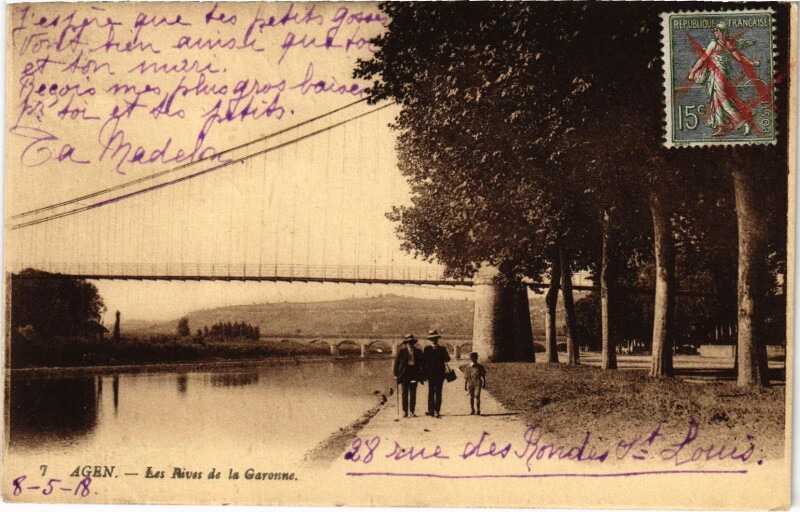 J'espère que tes petits gosses
vont bien ainsi que toi
et ton mari.
Reçois mes plus gros baisers
pr toi et tes petits.
Ta Madelon
RÉPUBLIQUE FRANÇAISE
15c
POSTES
28 rue des Rondes St Louis.
7 AGEN. — Les Rives de la Garonne.
8-5-18.